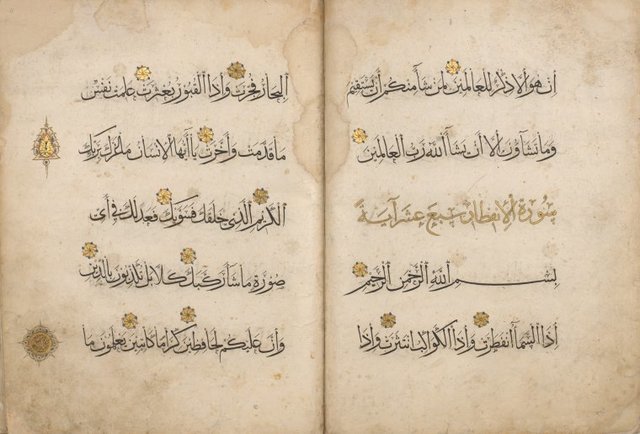 ان هو الا ذكر للعالمين لمن شا منكم ان يستقيم
وما تشاؤن الا ان يشا الله رب العالمين
سورة الانفطار سبع عشر آية
بسم الله الرحمن الرحيم
اذا السما انفطرت واذا الكواكب انتثرت واذا
البحار فجرت واذا القبور بعثرت علمت نفس
ما قدمت واخرت يا ايها الانسان ما غرك بربك
الكريم الذي خلقك فسويك فعدلك في اي
صورة ما شا ركبك كلا بل تكذبون بالدين
وان عليكم لحافظين كراما كاتبين يعلمون ما